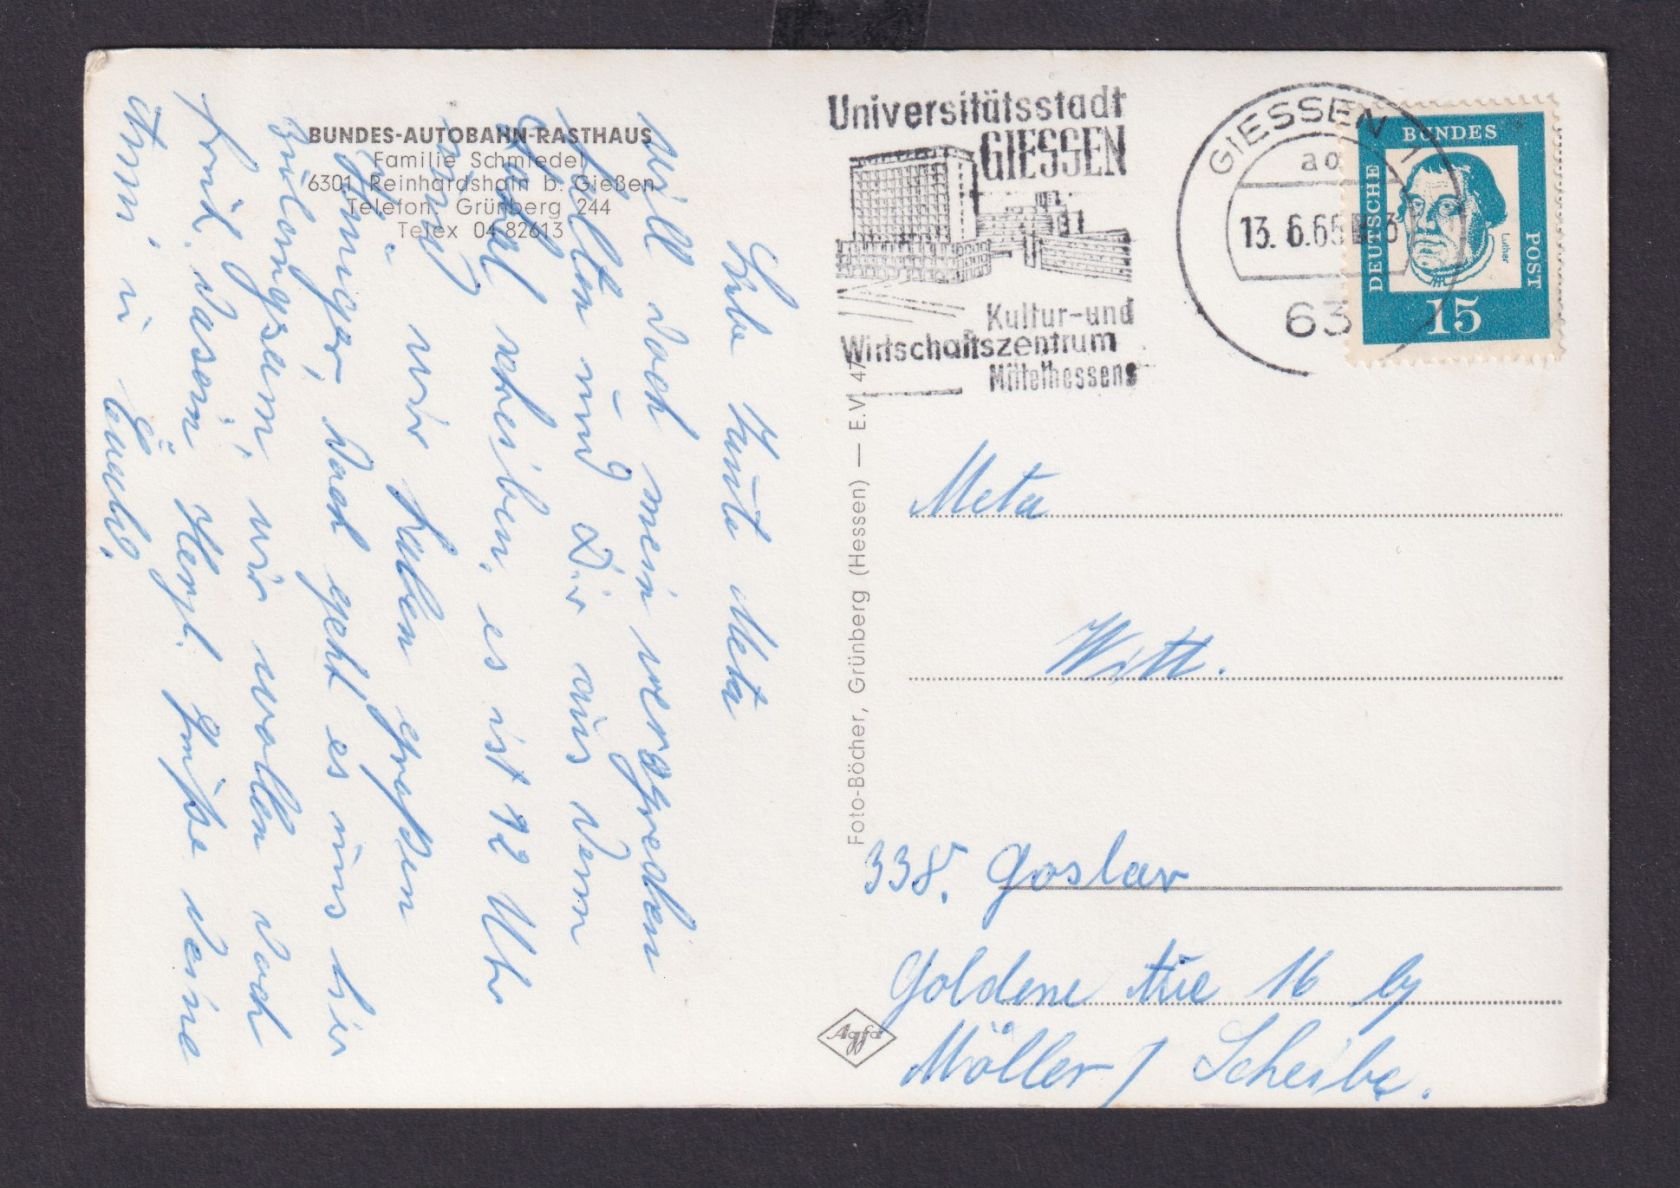 BUNDES-AUTOBAHN-RASTHAUS
Familie Schmiedel
6301 Reinhardshain b. Gießen
Telefon: Grünberg 244
Telex 04-82613
Liebe Tante Meta
Will doch mein
halten und Dir aus dem
schreiben, es ist 12 Uhr
wir haben großen
Hunger, doch geht es uns hier
wir wollen doch
Herzl. Grüße deine
Anni u
Foto-Böcher, Grünberg (Hessen) — E.V. 47
Agfa
Universitätsstadt
GIESSEN
Kultur-und
Wirtschaftszentrum
Mittelhessens
GIESSEN 1
ad
13. 6.65
63
DEUTSCHE
BUNDES
POST
Luther
15
Meta
Witt.
338. Goslar
Goldene Aue 16 by
Möller / Scheibe.